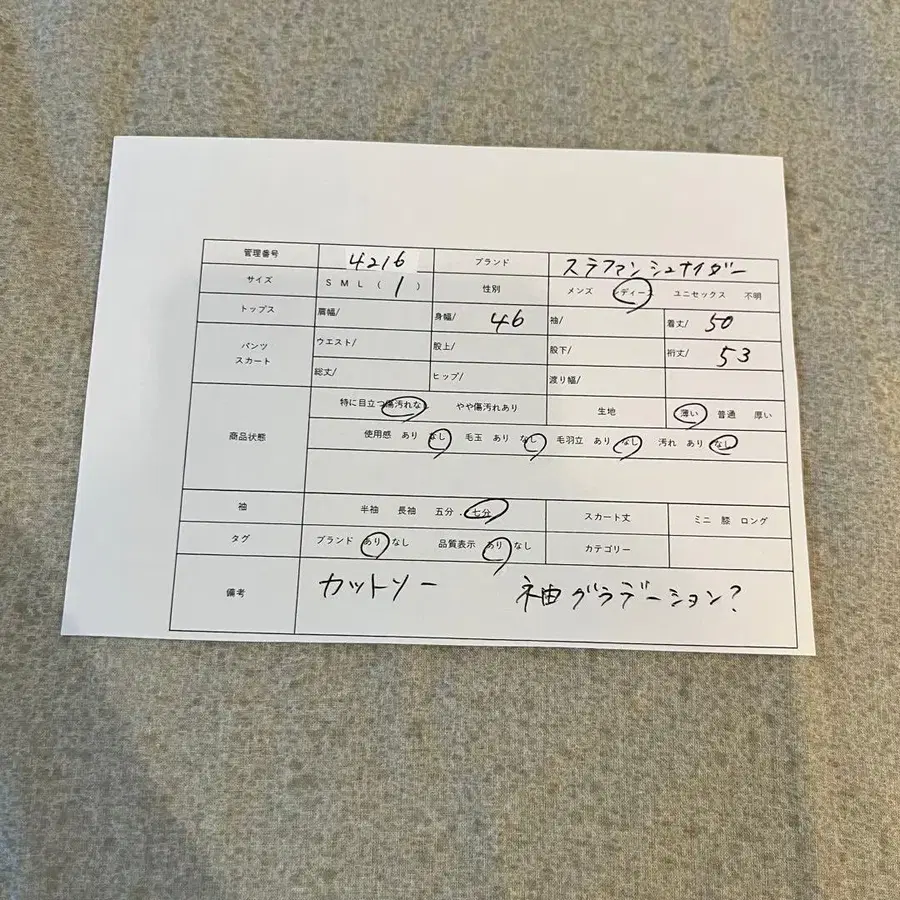 管理番号 4216 ブランド ステファンシュナイダー
サイズ S M L ( 1 ) 性別 メンズ レディース ユニセックス 不明
トップス 肩幅/ 身幅/ 46 袖/ 着丈/ 50
パンツ スカート ウエスト/ 股上/ 股下/ 裄丈/ 53
総丈/ ヒップ/ 渡り幅/
商品状態 特に目立つ傷汚れなし やや傷汚れあり 生地 薄い 普通 厚い
使用感 あり なし 毛玉 あり なし 毛羽立 あり なし 汚れ あり なし
袖 半袖 長袖 五分 . 七分 スカート丈 ミニ 膝 ロング
タグ ブランド あり なし 品質表示 あり なし カテゴリー
備考 カットソー 袖グラデーション?